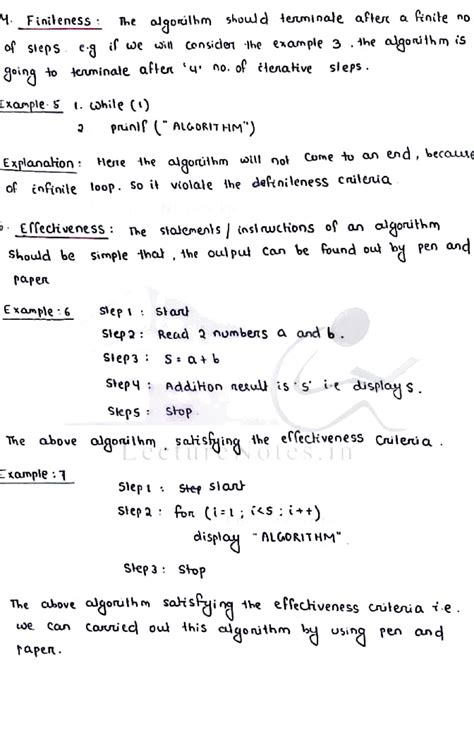 4. Finiteness : The algorithm should terminate after a finite no
of steps. e.g if we will consider the example 3, the algorithm is
going to terminate after '4' no. of iterative steps.
Example-5 1. while (1)
2 printf ("ALGORITHM")
Explanation : Here the algorithm will not come to an end, because
of infinite loop. So it violate the definiteness criteria
5. Effectiveness : The statements / instructions of an algorithm
should be simple that, the output can be found out by pen and
paper
Example : 6 Step 1 : Start
Step 2 : Read 2 numbers a and b.
Step 3 : S = a + b
Step 4 : Addition result is 's' i.e display s.
Step 5 : Stop
The above algorithm satisfying the effectiveness criteria.
LectureNotes.in
Example : 7
Step 1 : Step start
Step 2 : for (i=1; i<5; i++)
display "ALGORITHM"
Step 3 : Stop
The above algorithm satisfying the effectiveness criteria i.e.
we can carried out this algorithm by using pen and
paper.